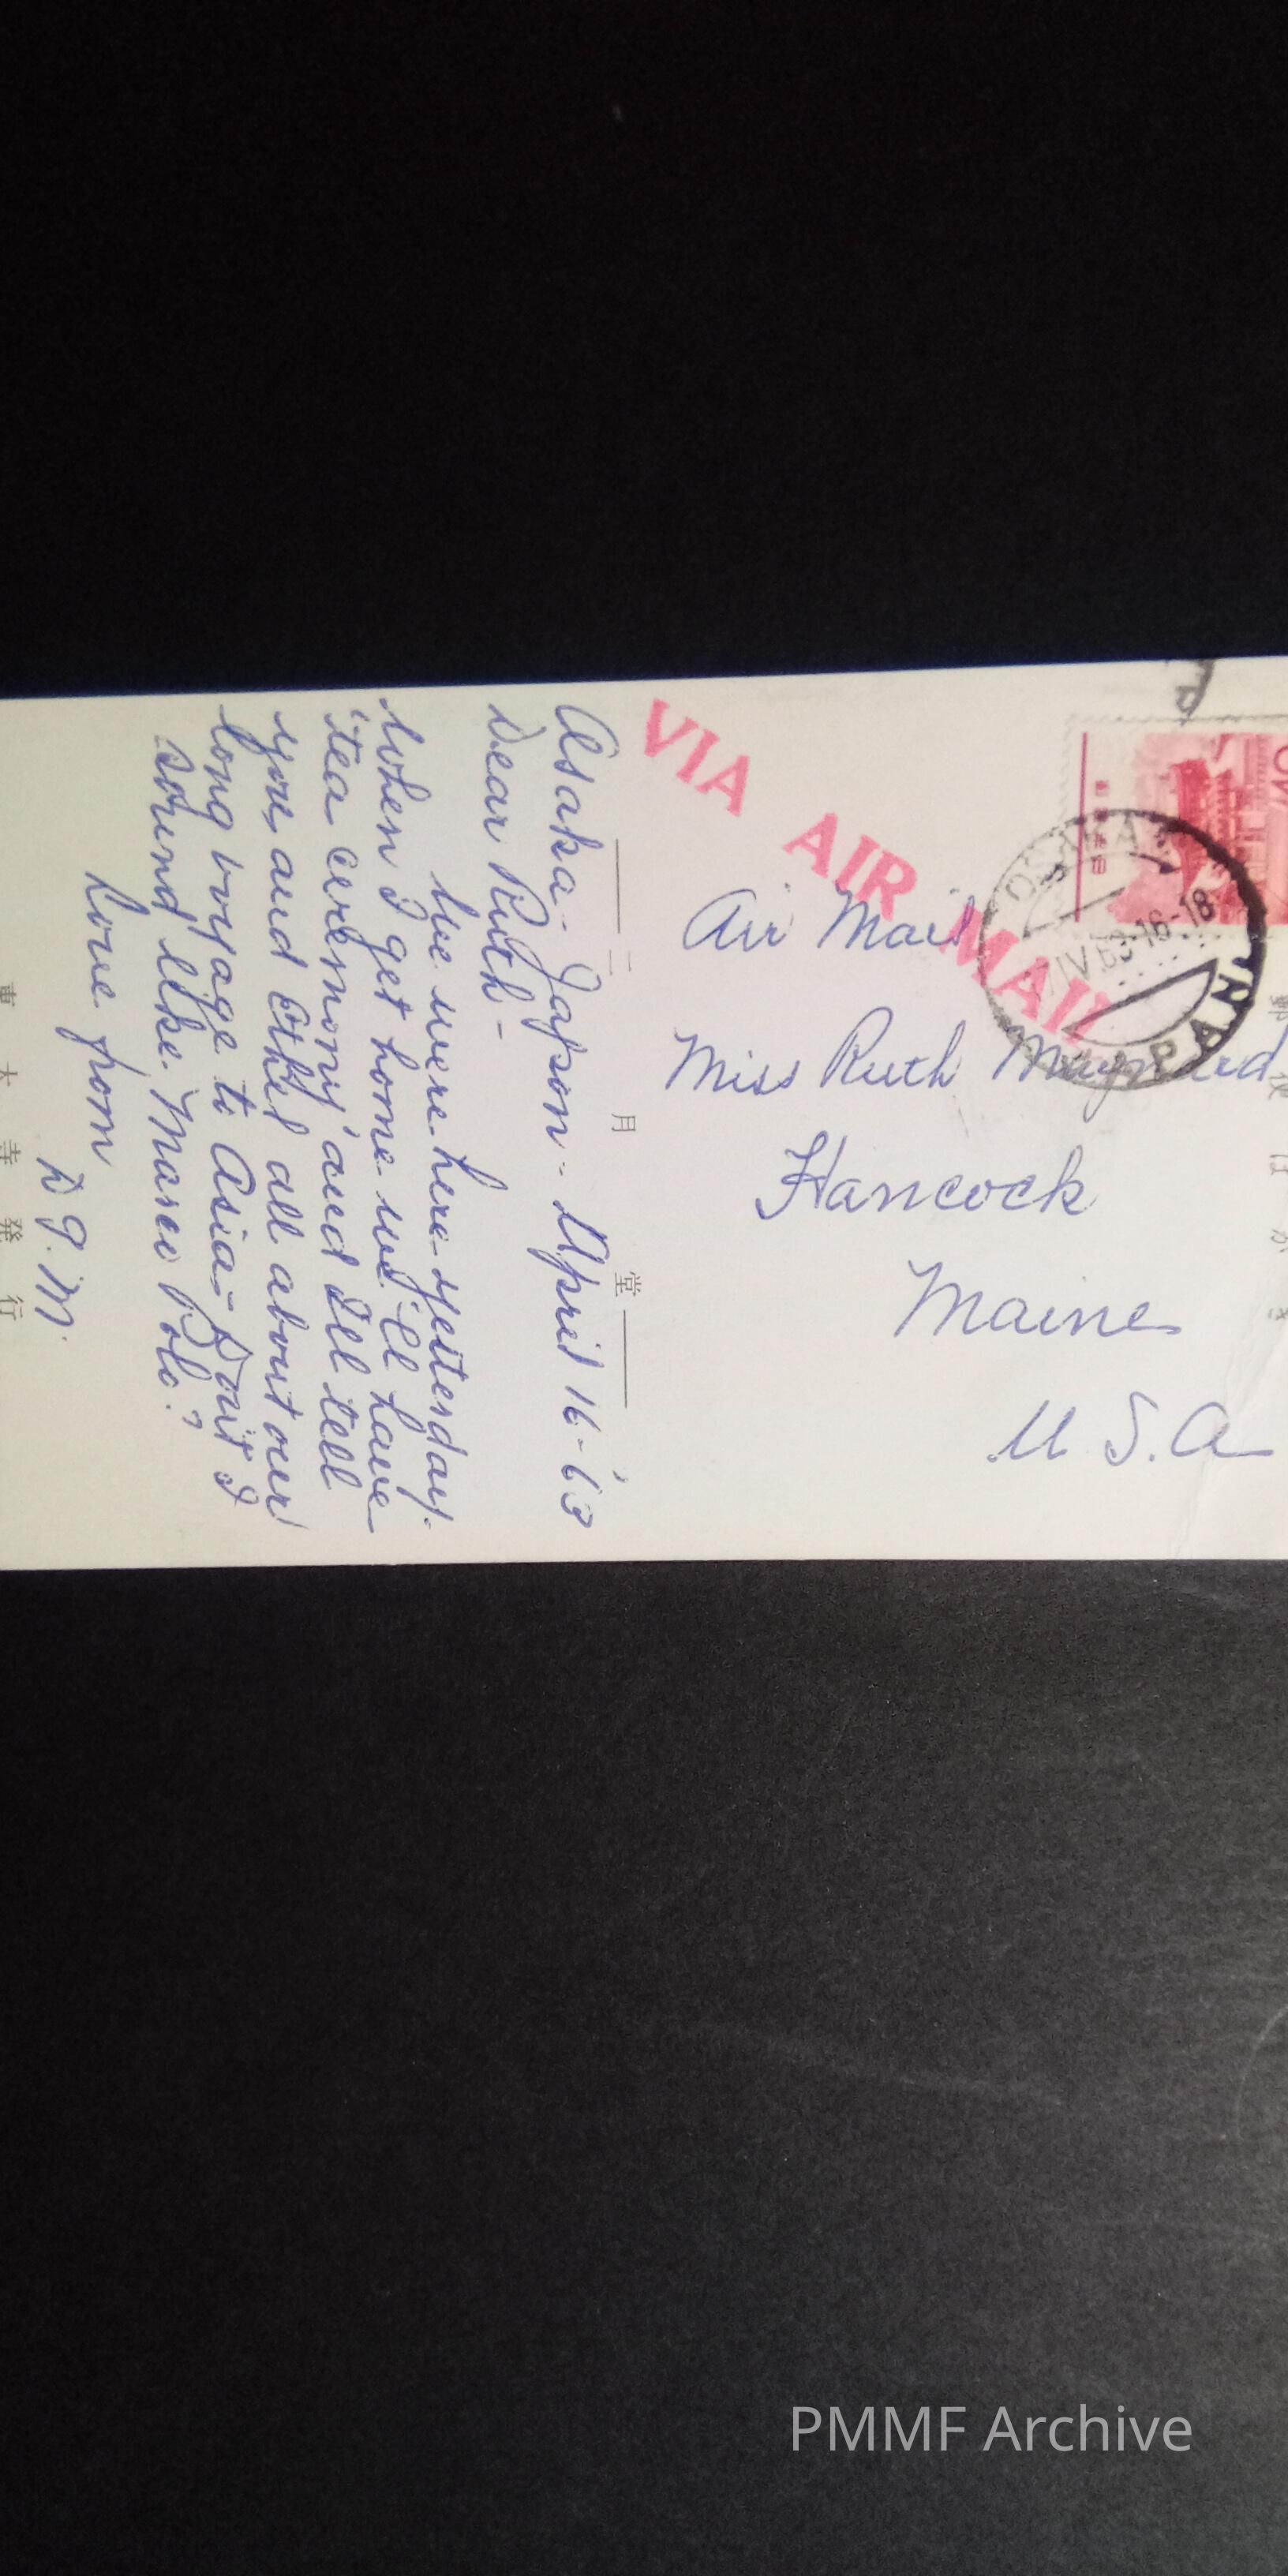 Osaka - Japan - April 16 - '63
Dear Ruth -
We were here yesterday.
When I get home we'll have
'tea ceremony' and I'll tell
you and Ethel all about our
long voyage to Asia - Don't I
sound like Marco Polo?
Love from
D G. M.
二月堂
東大寺発行
VIA AIR MAIL
Air Mail
Miss Ruth Maynard
Hancock
Maine
U S. A
郵便はがき
OSAKA
IV.63 16-18
JAPAN
PMMF Archive